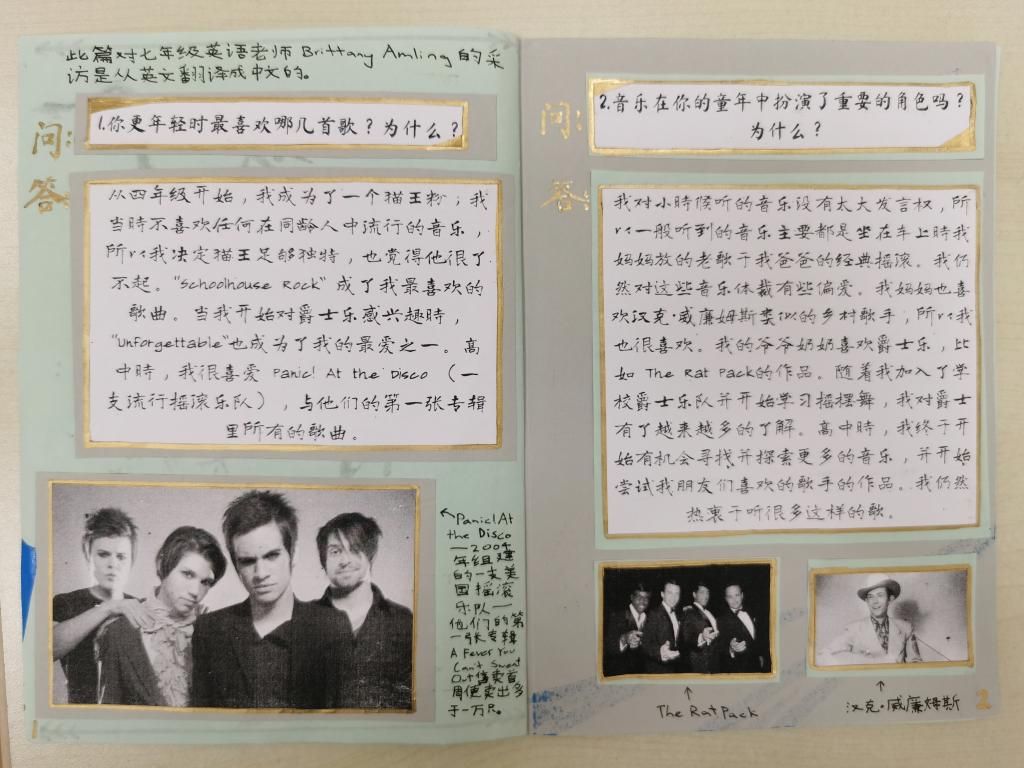 此篇对七年级英语老师 Brittany Amling 的采
访是从英文翻译成中文的。
问:
1.你更年轻时最喜欢哪几首歌？为什么？
答:
从四年级开始，我成为了一个猫王粉；我
当時不喜欢任何在同龄人中流行的音乐，
所以我决定猫王足够独特，也觉得他很了
不起。"Schoolhouse Rock" 成了我最喜欢的
歌曲。当我开始对爵士乐感兴趣時，
"Unforgettable"也成为了我的最爱之一。高
中時，我很喜爱 Panic! At the Disco （一
支流行摇滚乐队），与他们的第一张专辑
里所有的歌曲。
←Panic! At
the Disco
—2004
年组建
的一支美
国摇滚
乐队—
他们的第
一张专辑
A Fever You
Can't Sweat
Out售卖首
周便卖出多
于一万只。
1
问:
2.音乐在你的童年中扮演了重要的角色吗？
为什么？
答:
我对小時候听的音乐没有太大发言权，所
以一般听到的音乐主要都是坐在车上時我
妈妈放的老歌于我爸爸的经典摇滚。我仍
然对这些音乐体裁有些偏爱。我妈妈也喜
欢汉克·威廉姆斯类似的乡村歌手；所以我
也很喜欢。我的爷爷奶奶喜欢爵士乐，比
如 The Rat Pack的作品。随着我加入了学
校爵士乐队并开始学习摇摆舞，我对爵士
有了越来越多的了解。高中時，我终于开
始有机会寻找并探索更多的音乐，并开始
尝试我朋友们喜欢的歌手的作品。我仍然
热衷于听很多这样的歌。
↑
The Rat Pack
↑
汉克·威廉姆斯
2